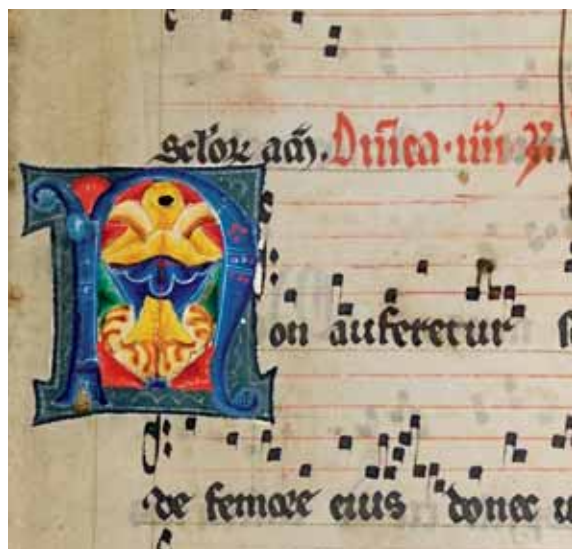 scl'oꝝ am̃. Dñica · iiii ·
Non auferetur
de femore eius donec